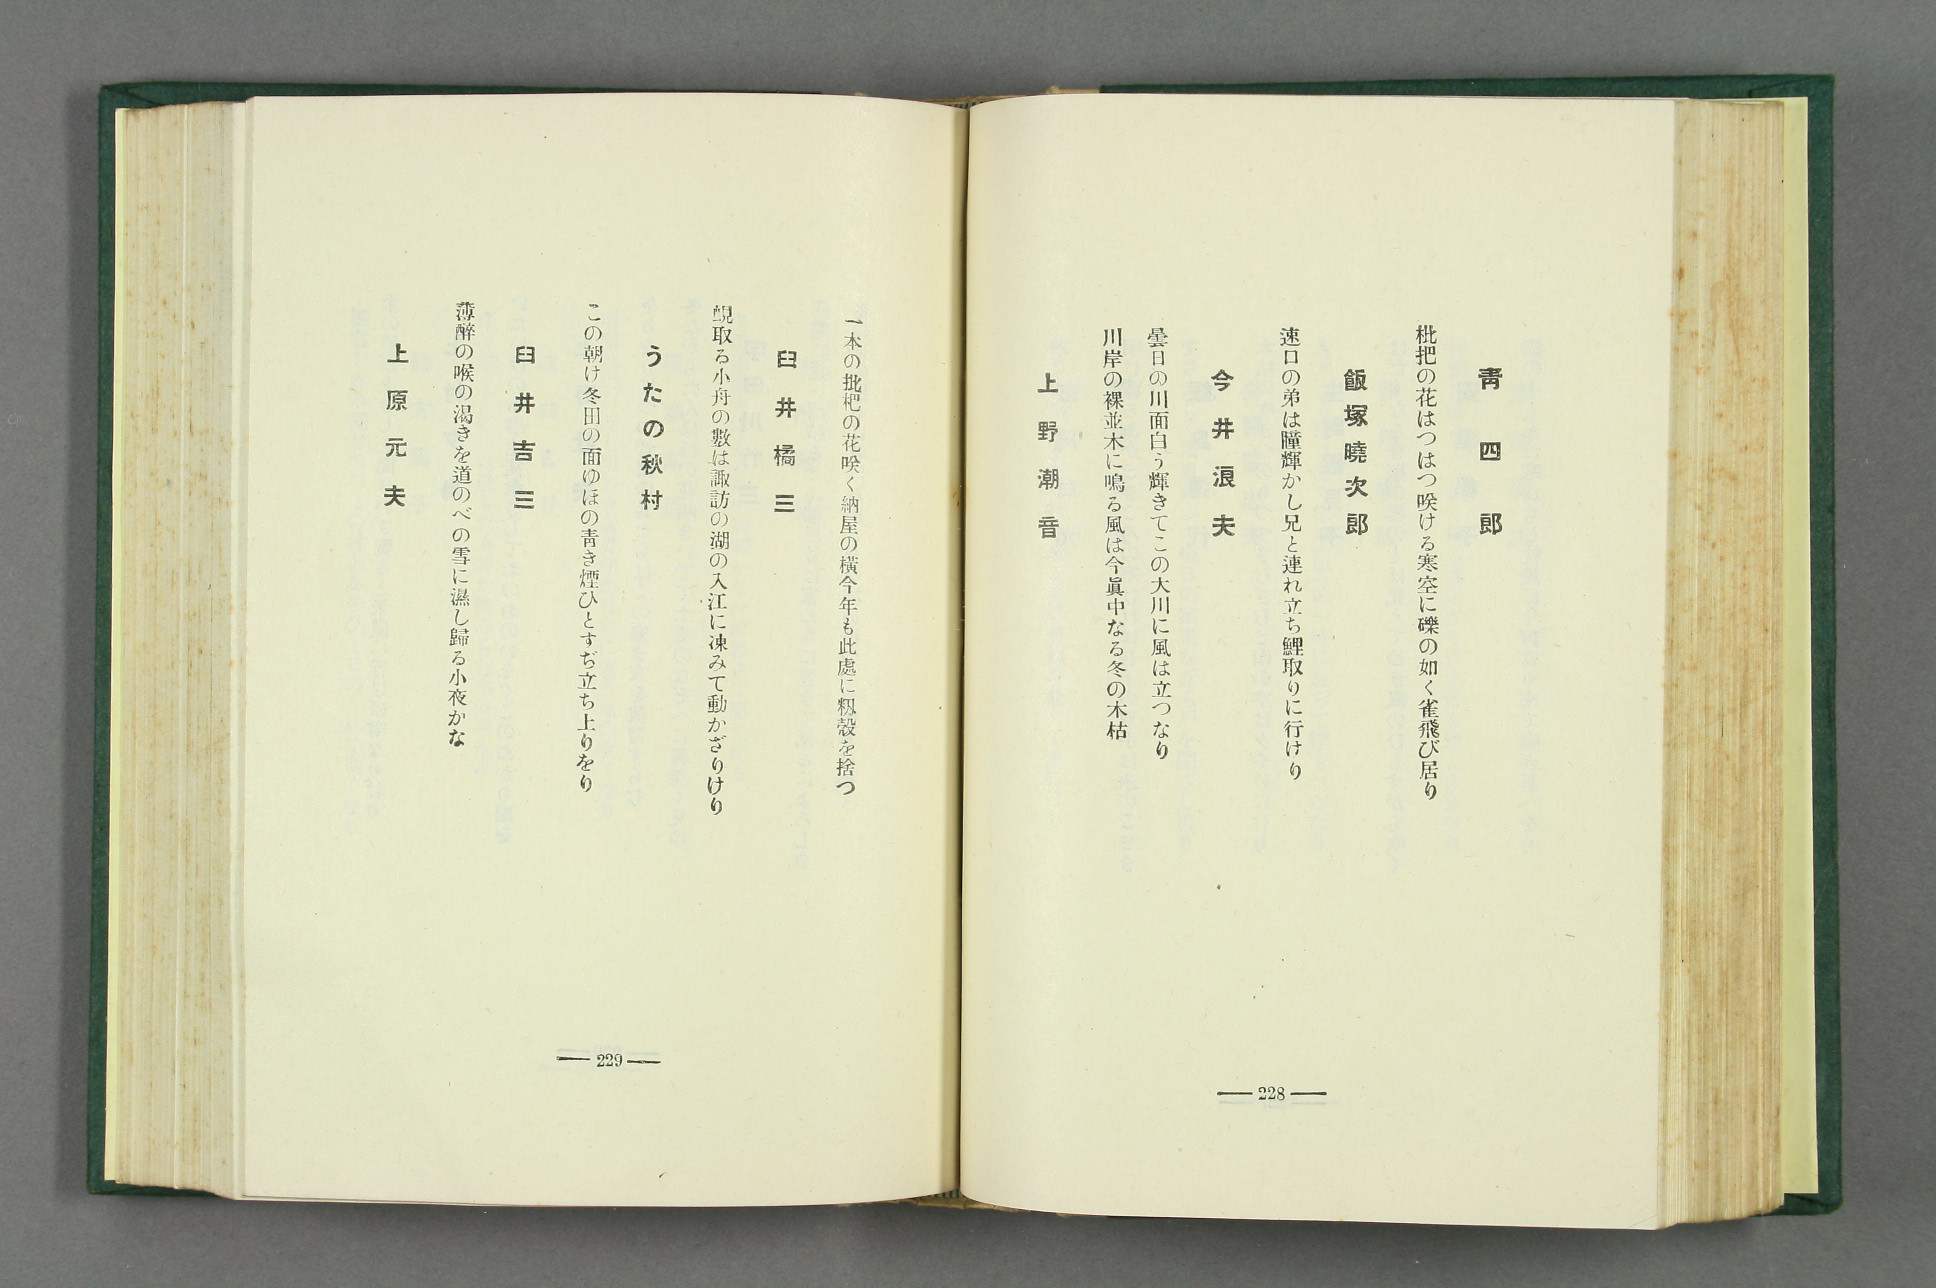 青四郎
枇把の花はつはつ咲ける寒空に礫の如く雀飛び居り
飯塚曉次郎
速口の弟は瞳輝かし兄と連れ立ち鯉取りに行けり
今井浪夫
曇日の川面白う輝きてこの大川に風は立つなり
川岸の裸並木に鳴る風は今眞中なる冬の木枯
上野潮音
228
一本の批杷の花咲く納屋の横今年も此處に籾殼を捨つ
臼井橘三
蜆取る小舟の數は諏訪の湖の入江に凍みて動かざりけり
うたの秋村
この朝け冬田の面ゆほの青き煙ひとすぢ立ち上りをり
臼井吉三
薄醉の喉の渇きを道のべの雪に濕し歸る小夜かな
上原元夫
229